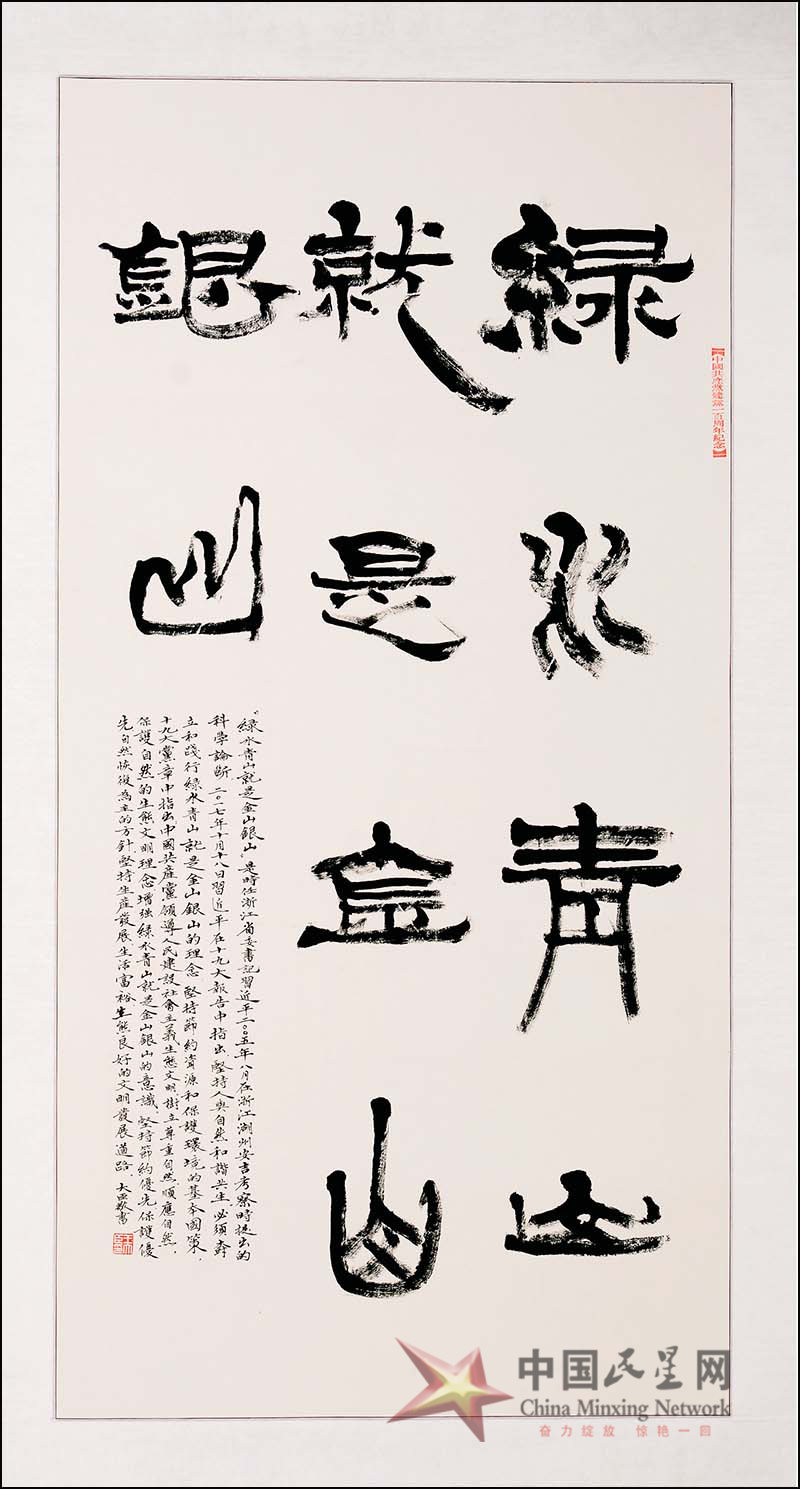 【中國共產黨建黨一百周年紀念】
綠水青山
就是金山
銀山
"綠水青山就是金山銀山"是時任浙江省委書記習近平二〇〇五年八月在浙江湖州安吉考察時提出的
科學論斷 二〇一七年十月十八日習近平在十九大報告中指出堅持人與自然和諧共生必須樹
立和踐行綠水青山就是金山銀山的理念堅持節約資源和保護環境的基本國策、
十九大黨章中指出中國共產黨領導人民建設社會主義生態文明樹立尊重自然順應自然、
保護自然的生態文明理念增強綠水青山就是金山銀山的意識、堅持節約優先保護優
先自然恢復為主的方針堅持生產發展生活富裕生態良好的文明發展道路 大 書
中国民星网
China Minxing Network
奋力绽放 惊艳一回